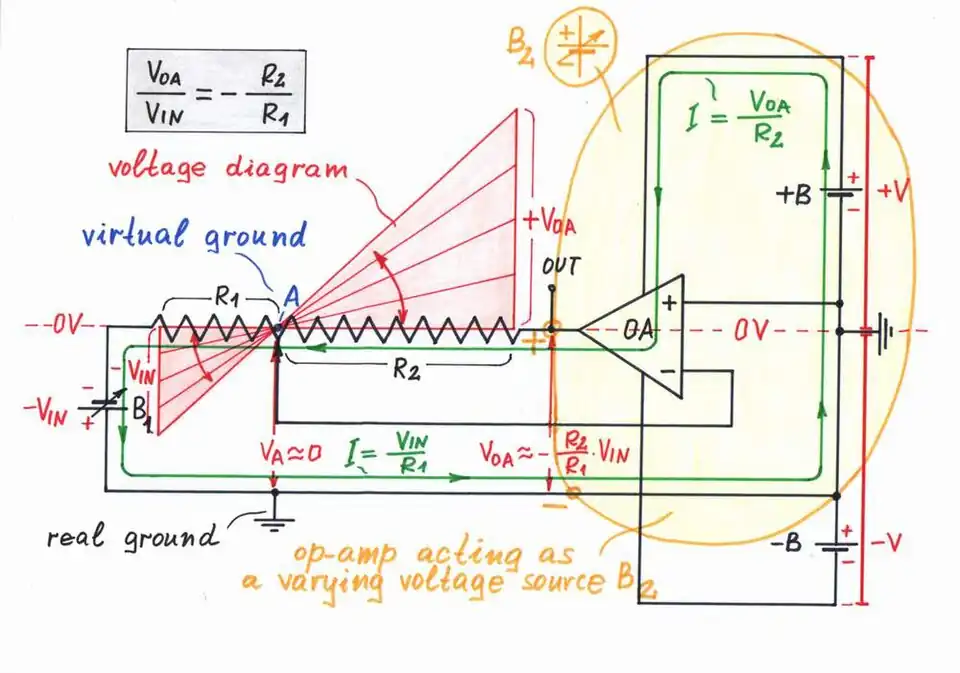 B2
+
VOA / VIN = - R2 / R1
I = VOA / R2
voltage diagram
+B
+
-
+V
virtual ground
+VOA
OUT
R1
A
+
0V
OA
0V
+
R2
-
VIN
-
-VIN
B1
+
VA≈0
I = VIN / R1
VOA≈- R2 / R1 · VIN
-
real ground
op-amp acting as
a varying voltage source B2
-B
+
-
-V